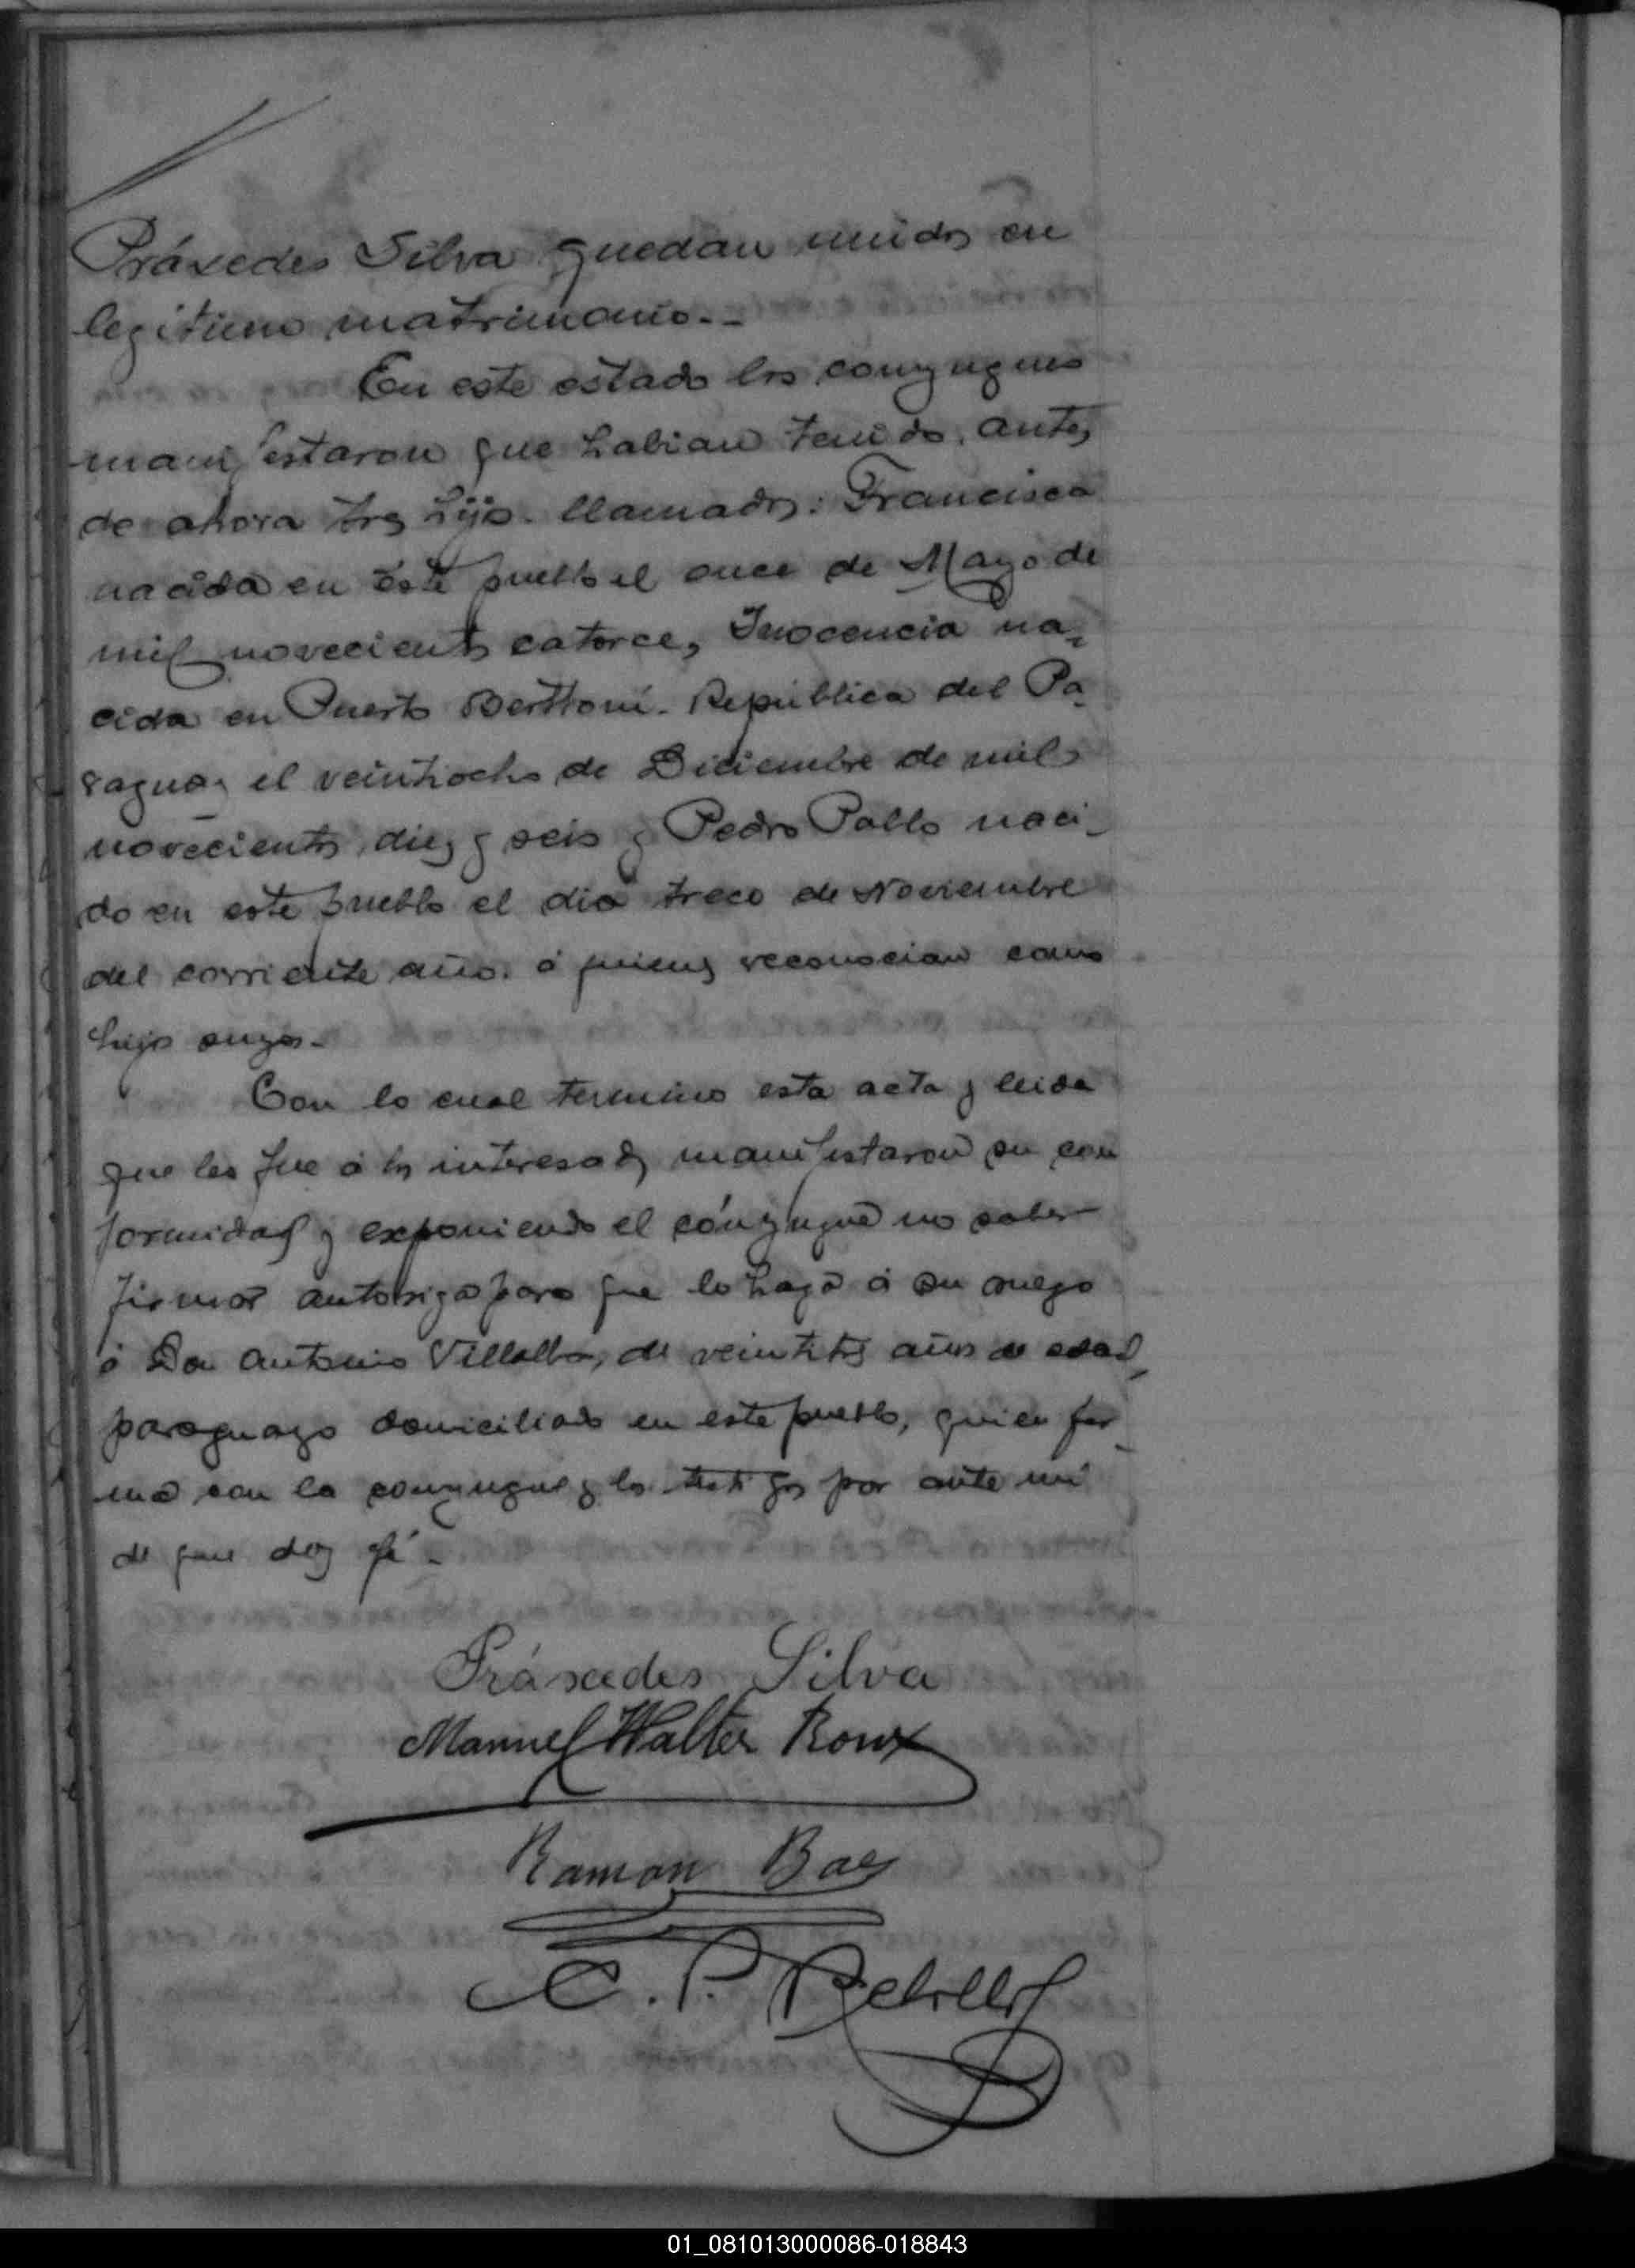 Práxedes Silva quedan unidos en
legitimo matrimonio.-
En este estado los conyugues
manifestaron que habian tenido, antes
de ahora tres hijos. llamados: Francisca
nacida en este pueblo el once de Mayo de
mil novecientos catorce, Inocencia na-
cida en Puerto Berttoni. República del Pa-
raguay el veintiocho de Diciembre de mil
novecientos diez y seis y Pedro Pablo naci-
do en este pueblo el dia trece de Noviembre
del corriente año. á quienes reconocian como
hijos suyos.-
Con lo cual termino esta acta y leida
que les fue á los interesados manifestaron su con
formidad y exponiendo el cónyugue no saber
firmar autoriza para que lo haga á su ruego
á Don Antonio Villalba, de veintitres años de edad,
paraguayo domiciliado en este pueblo, quien fir-
ma con la conyugue y los testigos por ante mi
de que doy fé.-
Práxedes Silva
Manuel Walter Roux
Ramon Baez
C. P.
01_081013000086-018843